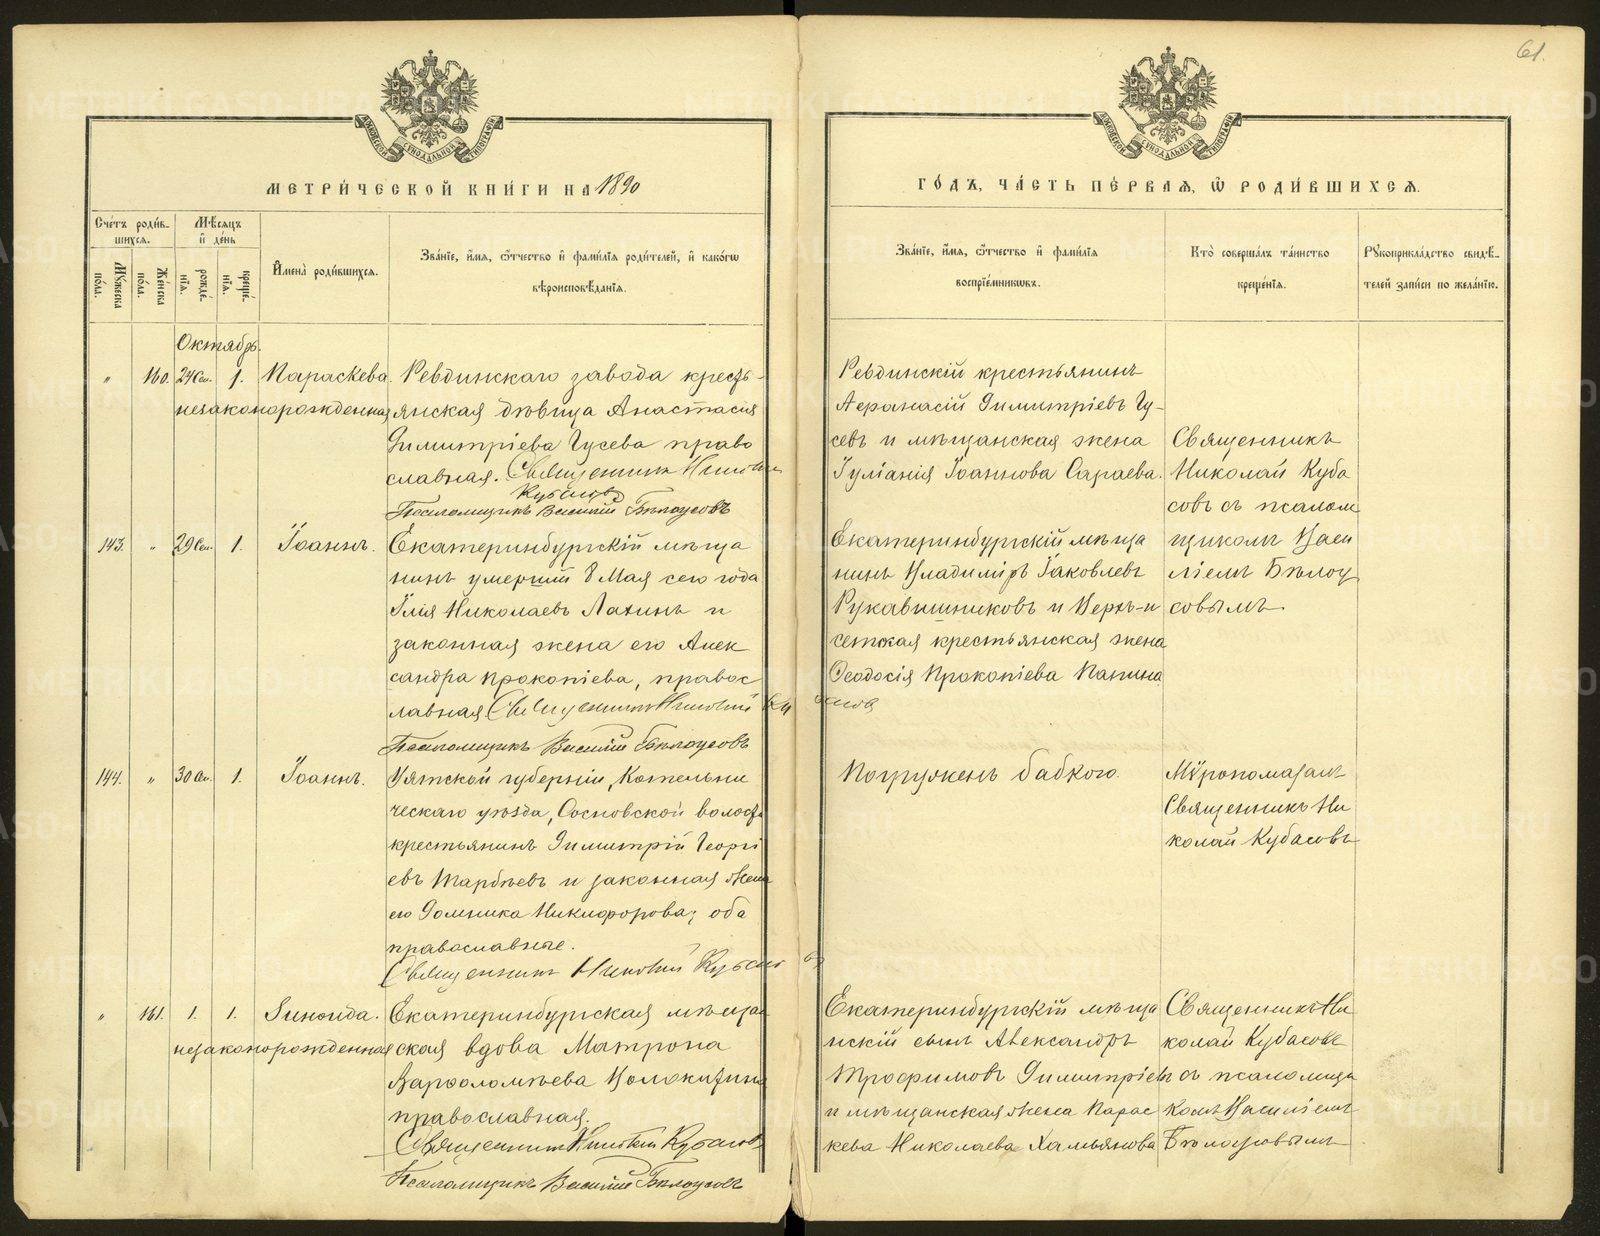 61.
МЕТРИ́ЧЕСКОЙ КНИ́ГИ НА 1890
ГО́ДЪ, ЧА́СТЬ ПЕ́РВАѦ, Ѿ РОДИ́ВШИХСѦ.
Сче́тъ роди́в-
шихся.
Мѣ́сяцъ
и де́нь
Му́жеска
по́ла.
Же́нска
по́ла.
рожде́-
нїя.
креще́-
нїя.
Имена̀ роди́вшихся.
Зва́нїе, и́мя, ѻ́тчество и фами́лїя роди́телей, и како́гѡ
вѣроисповѣ́данїя.
Зва́нїе, и́мя, ѻ́тчество и фами́лїя
воспрїе́мникѡвъ.
Кто̀ соверша́лъ та́инство
креще́нїя.
Рꙋкоприкла́дство свидѣ́-
телей за́писи по жела́нїю.
Октябрь.
" 160. 24 Сен. 1. Параскева.
незаконорожденная
Ревдинскаго завода кресть-
янская дѣвица Анастасія
Димитріева Гусева право
славная. Священникъ Николай
Кубасовъ
Псаломщикъ Василій Бѣлоусовъ
Ревдинскій крестьянинъ
Аѳанасій Димитріевъ Гу-
севъ и мѣщанская жена
Іуліанія Іоаннова Сараева.
Священникъ
Николай Куба
совъ съ псалом
щикомъ Васи
ліемъ Бѣлоу
совымъ.
143. " 29 Сен. 1. Іоаннъ.
Екатеринбургскій мѣща
нинъ умершій 8 Мая сего года
Илія Николаевъ Лахинъ и
законная жена его Алек
сандра Прокопіева, правос
лавная Священникъ Николай Кубасовъ
Псаломщикъ Василій Бѣлоусовъ
Екатеринбургскій мѣща
нинъ Владиміръ Іаковлевъ
Рукавишниковъ и Верхъ-и
сетская крестьянская жена
Ѳеодосія Прокопіева Папина
144. " 30 1. Іоаннъ.
Вятской губерніи, Котельни
ческаго уѣзда, Сосновской волости
крестьянинъ Димитрій Георгі
евъ Тарбѣевъ и законная жена
его Домника Никифорова; оба
православные.
Священникъ Николай Кубасовъ
Погруженъ бабкою.
Мѵропомазалъ
Священникъ Ни
колай Кубасовъ
" 161. 1. 1. Зинаида.
незаконорожденная
Екатеринбургская мѣщан
ская вдова Матрона
Варѳоломѣева Колокизина
православная.
Священникъ Николай Кубасовъ
Псаломщикъ Василій Бѣлоусовъ
Екатеринбургскій мѣща
нскій сынъ Александръ
Трофимовъ Димитріевъ
и мѣщанская жена Парас
кева Николаева Хамьянова
Священникъ Ни
колай Кубасовъ
съ псаломщи
комъ Василіемъ
Бѣлоусовымъ